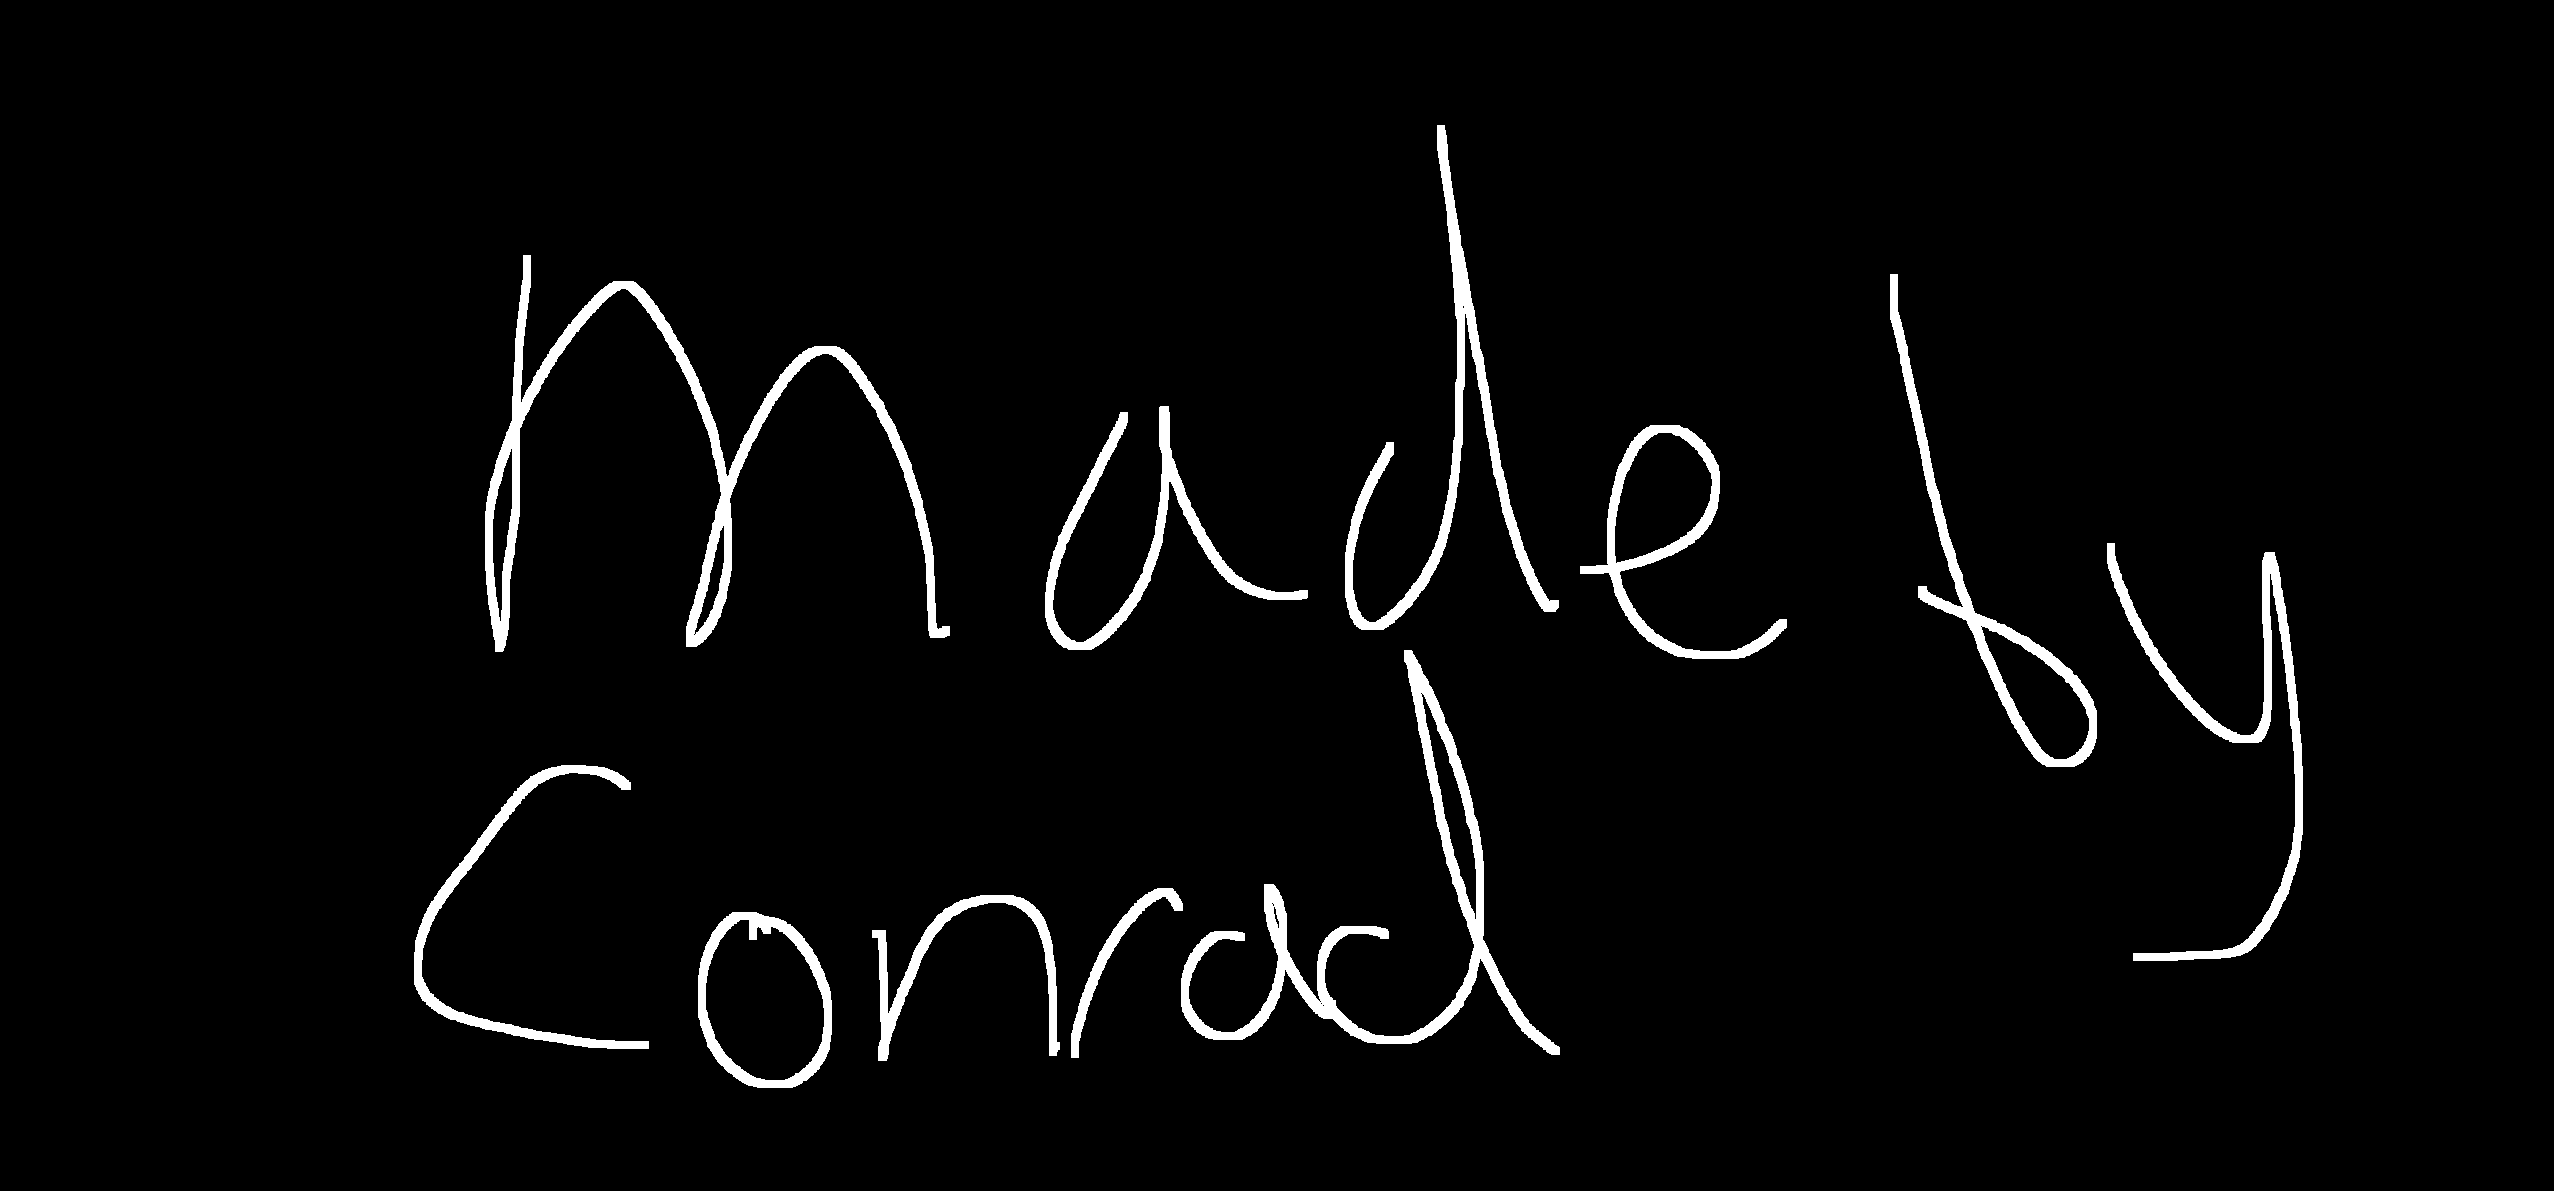 made by
Conrad